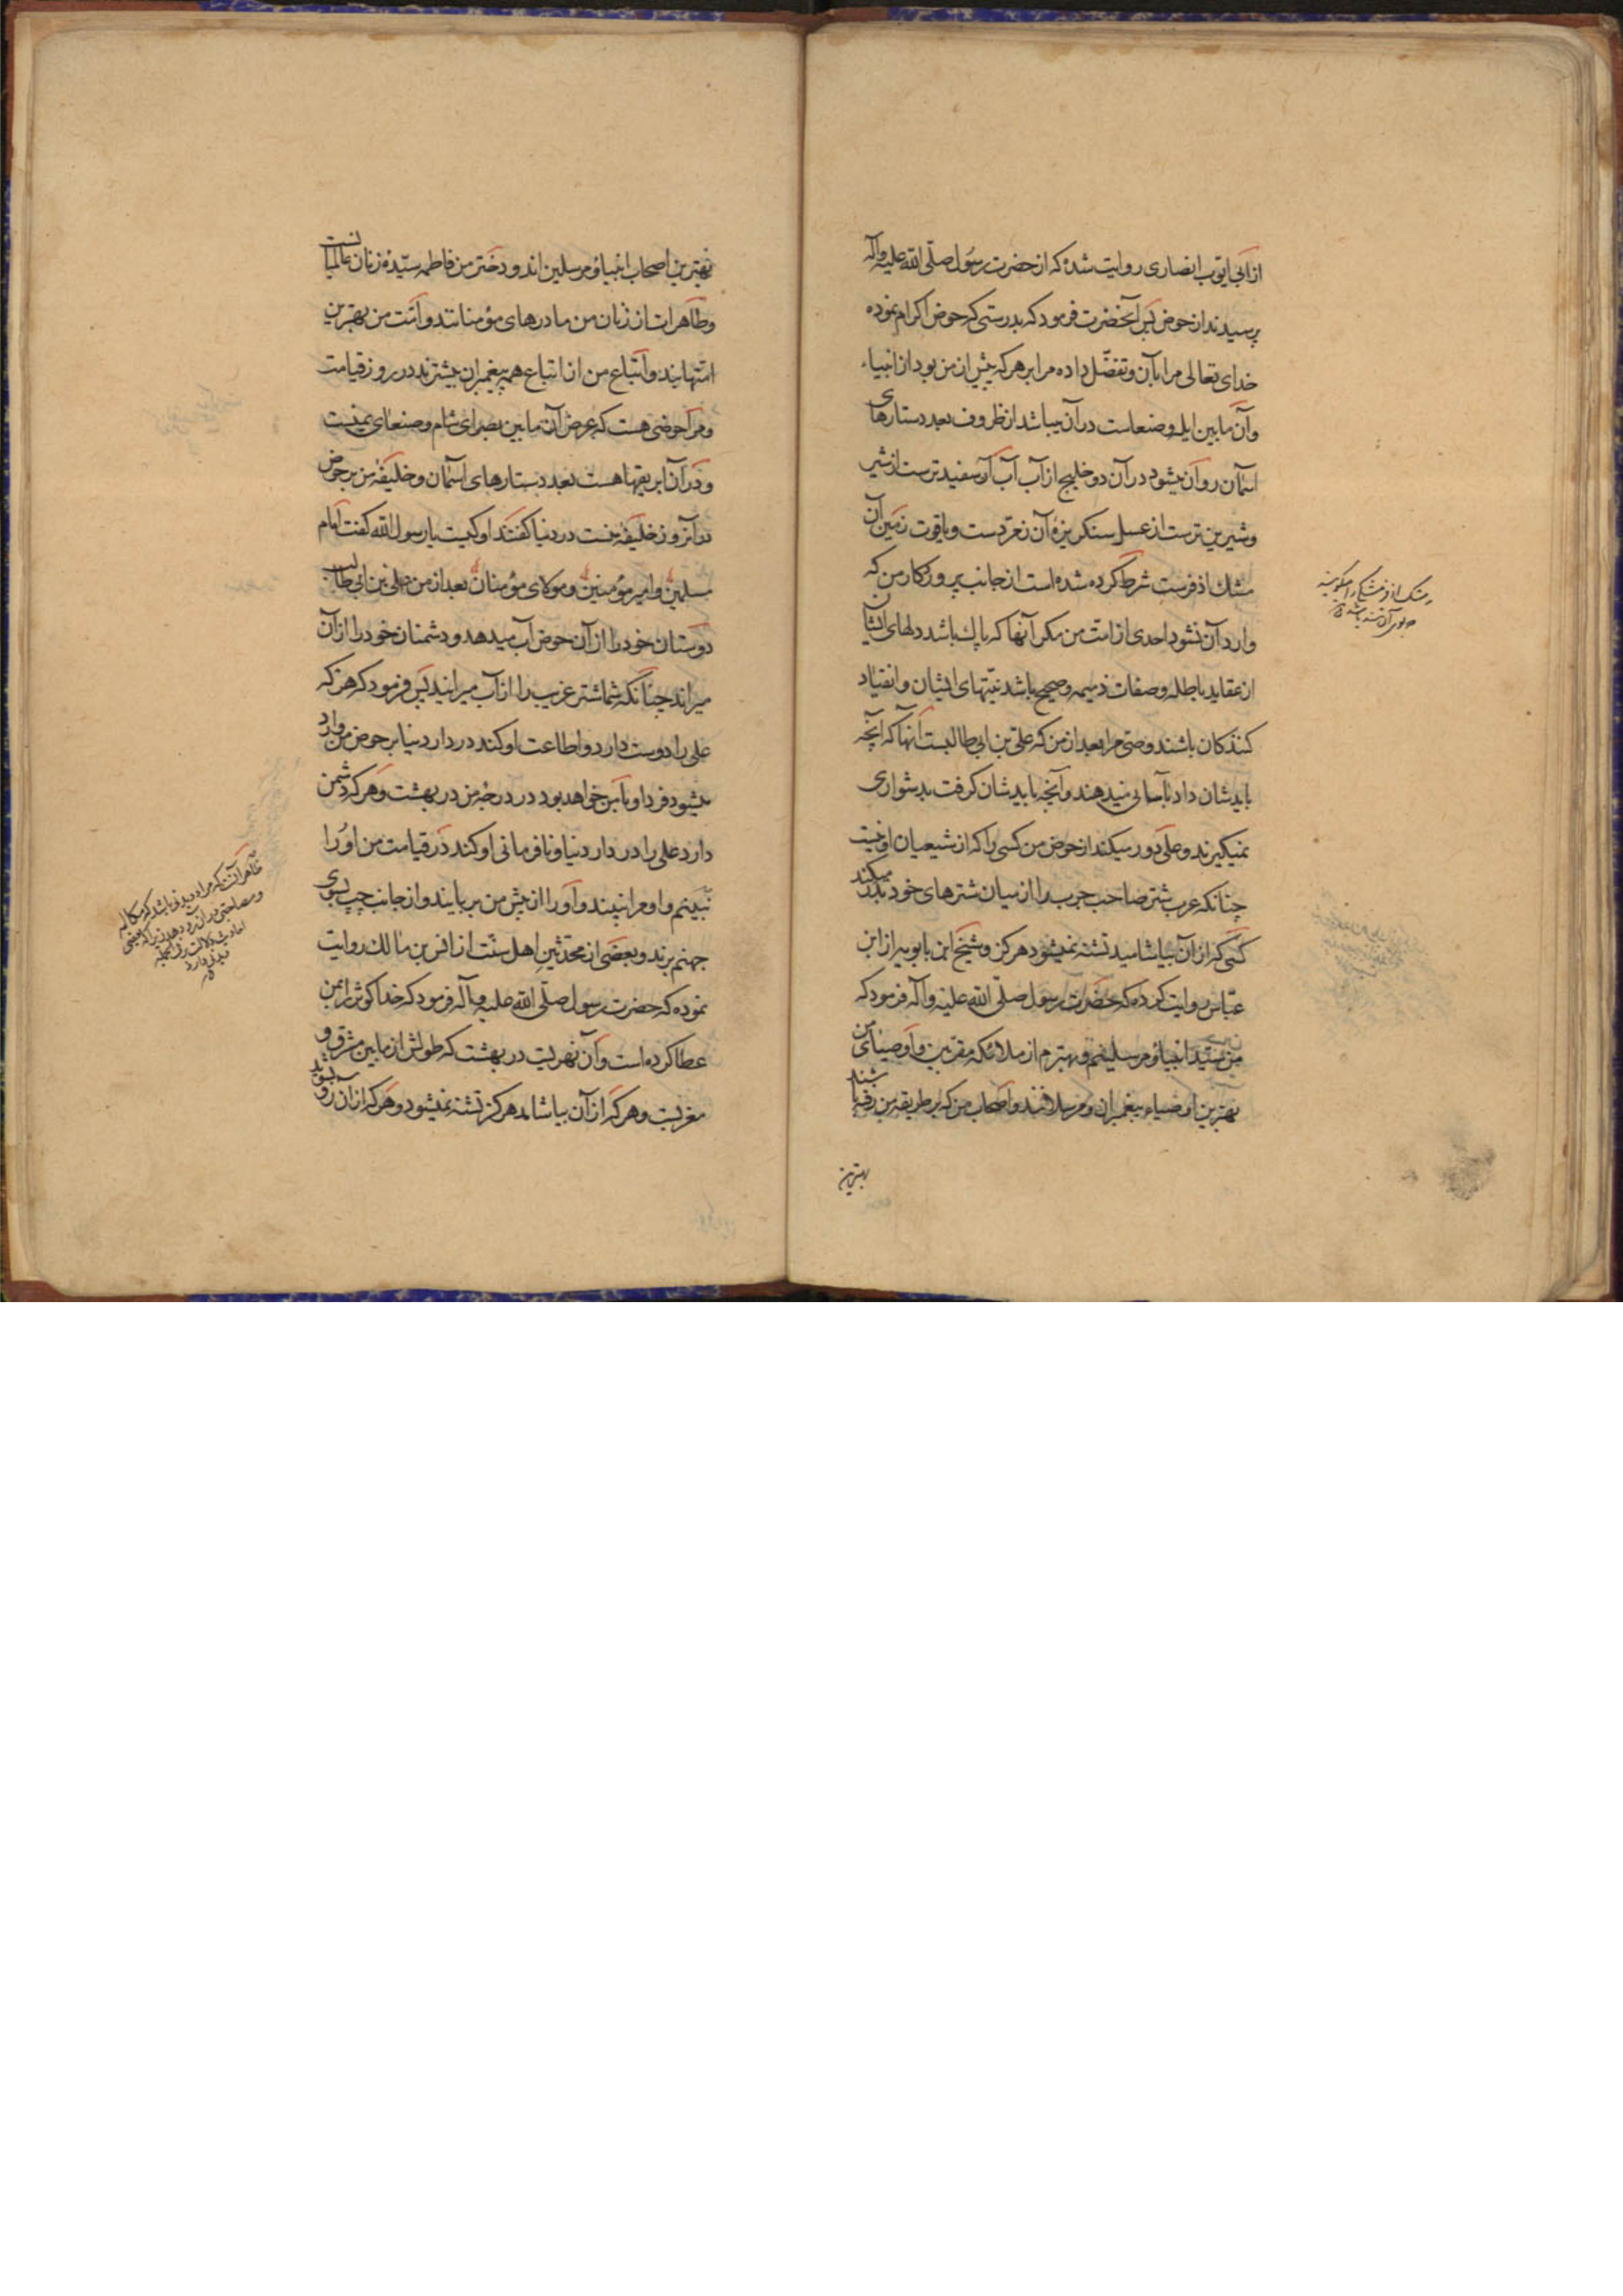 از ابی ایوب انصاری روایت شده که از حضرت رسول صلّی الله علیه وآله
پرسیدند از حوض پس آنحضرت فرمود که بدرستی که حوض اکرام نموده
خدای تعالی مرا بآن و تفضّل داده مرا بر هر که پیش از من بود از انبیاء
وآن مابین ایله وصنعاست در آن میباشد از ظروف بعدد ستارهای
آسمان روان میشود در آن دو خلیج از آب آب او سفیدترست از شیر
وشیرین ترست از عسل سنکریزهٔ آن زمرّدست ویاقوت زمین آن
مشك اذفرست شرط کرده شده است از جانب پروردکار من که
وارد آن نشود احدی از امّت من مکر آنها که پاك باشد دلهای ایشان
از عقاید باطله وصفات ذمیمه وصحیح باشد نیّتهای ایشان وانقیاد
کنندکان باشند وصیّ مرا بعد از من که علیّ بن ابی طالبست آنها که آنچه
بایدشان داد بآسانی میدهند وآنچه بایدشان کرفت بدشواری
نمیکیرند وعلی دور میکند از حوض من کسی را که از شیعیان او نیست
چنانکه عرب شتر صاحب جرب را از میان شترهای خود بدر میکند
کسی که از آن بیاشامید تشنه نمیشود هرکز وشیخ ابن بابویه از ابن
عبّاس روایت کرده که حضرت رسول صلّی الله علیه وآله فرمود که
من سیّد انبیاء و مرسلینم وبهترم از ملائکه مقربین واوصیای من
بهترین اوصیاء پیغمبران ومرسلانند واصحاب من که بر طریقه من رفته باشند
بهترین
مشک اذفر
بهترین اصحاب انبیاء ومرسلین اند ودختر من فاطمه سیّدهٔ زنان عالمیانست
وطاهرات از زنان من مادرهای مؤمنانند وامّت من بهترین
امّتهایند واتباع من از اتباع همه پیغمبران بیشترند در روز قیامت
ومرا حوضی هست که عرض آن مابین بصرای شام وصنعای یمنست
ودر آن ابریقها هست بعدد ستارهای آسمان وخلیفهٔ من بر حوض
در آنروز خلیفهٔ منست در دنیا کفتند او کیست یا رسول الله کفت امام
مسلمین وامیر مؤمنین ومولای مؤمنان بعد از من علی بن ابی طالب
دوستان خود را از آن حوض آب میدهد ودشمنان خود را از آن
میراند چنانکه شما شتر غریب را از آب میرانید پس فرمود که هر که
علی را دوست دارد واطاعت او کند در دار دنیا بر حوض من وارد
میشود فردا وبا من خواهد بود در درجهٔ من در بهشت وهر که دشمن
دارد علی را در دار دنیا ونافرمانی او کند در قیامت من او را
نبینم واو مرا نبیند واو را از پیش من بربایند واز جانب چپ بسوی
جهنم برند وبعضی از محدّثین اهل سنّت از انس بن مالك روایت
نموده که حضرت رسول صلّی الله علیه وآله فرمود که خدا کوثر را بمن
عطا کرده است وآن نهریست در بهشت که طولش از مابین مشرق و
مغربست وهر که از آن بیاشامد هرکز تشنه نمیشود وهر که از آن رو بشوید
ظاهر آنست که مراد